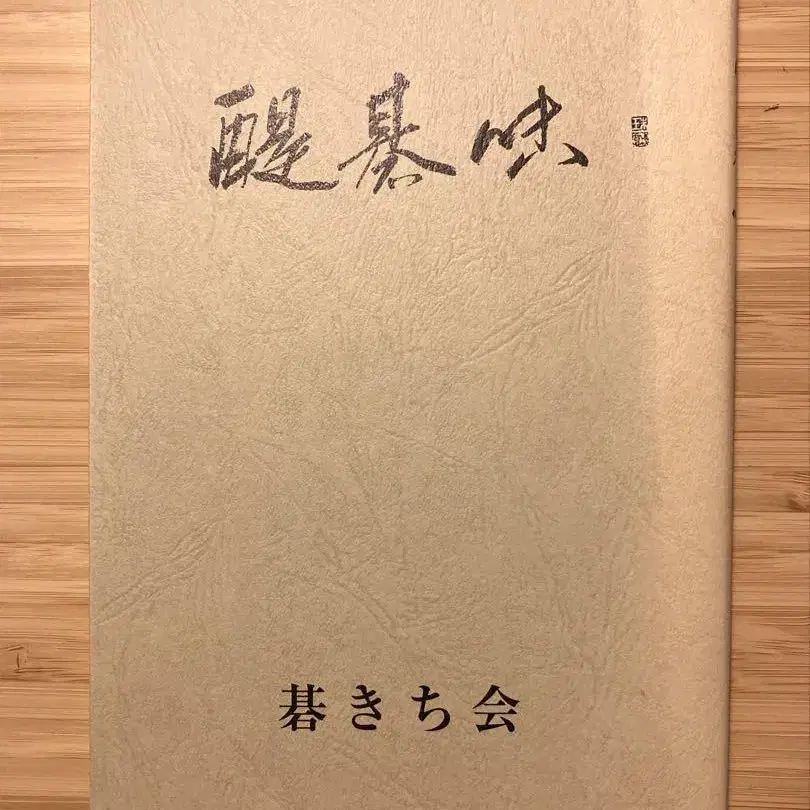 醍碁味
碁きち会